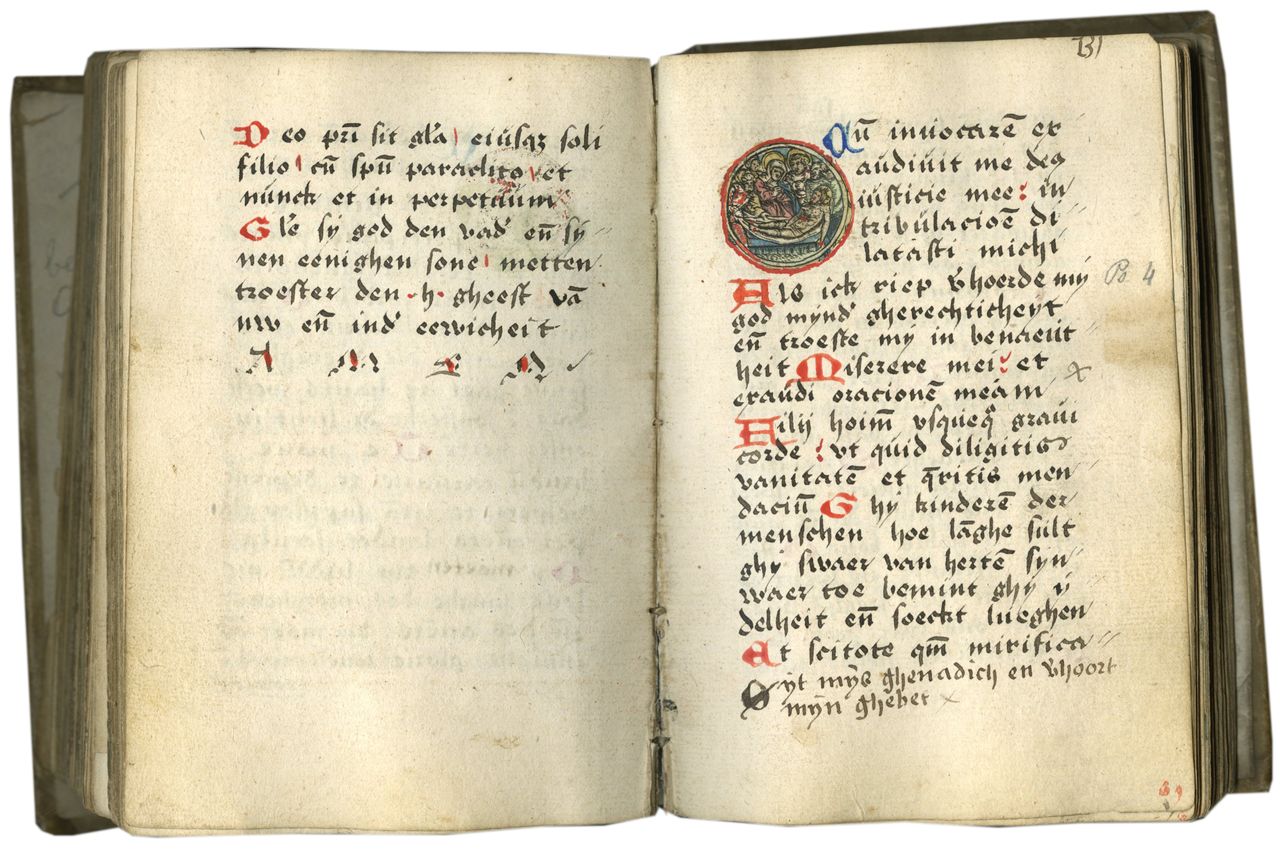 Deo pr̄i sit gl̄a eiusqꝫ soli
filio cū sp̄u paraclito et
nunck et in perpetuum
Gl̓e sy god den vad̓ en̄ sy⸗
nen eenighen sone metten
troester den ·h· gheest vā
nw en̄ ind̓ eewicheit
A M E N
131
Cū inuocarē ex
audiuit me deꝯ
iusticie mee: in
tribulacioē di
latasti michi
Als ick riep v̓hoerde my
god mynd̓ gherechticheyt
en̄ troeste my in benaeut
heit Miserere mei: et
exaudi oracionē meam
Filij hoīm vsqueq̄ graui
corde: vt quid diligitis
vanitatē et q̄ritis men
daciū Ghy kinderē der
menschen hoe lāghe sult
ghy swaer van hertē syn
waer toe bemint ghy y
delheit en̄ soeckt lueghen
Et scitote qm̄ mirifica⸗
Syt mijs ghenadich en v̓hoort
mijn ghebet x
Ps 4
x